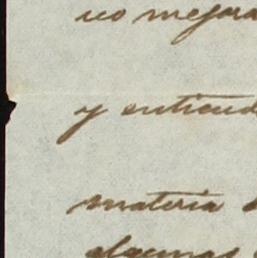 no mejora
y entiend
materia
algunas